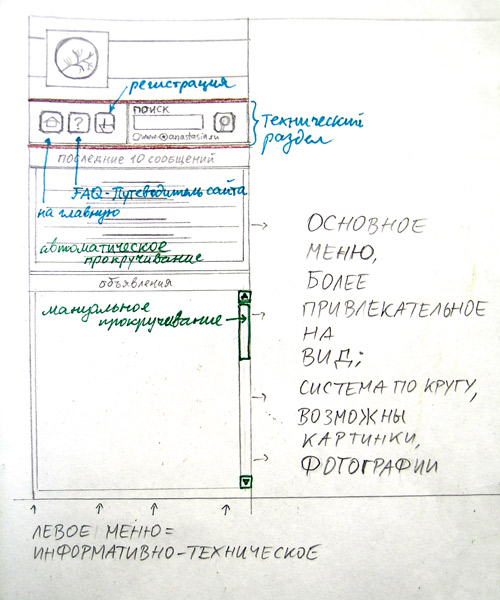 регистрация
ПОИСК
www.anastasia.ru
Технический
раздел
последние 10 сообщений
FAQ-Путеводитель сайта
на главную
автоматическое
прокручивание
объявления
мануальное
прокручивание
ОСНОВНОЕ
МЕНЮ,
БОЛЕЕ
ПРИВЛЕКАТЕЛЬНОЕ
НА
ВИД;
СИСТЕМА ПО КРУГУ,
ВОЗМОЖНЫ
КАРТИНКИ,
ФОТОГРАФИИ
ЛЕВОЕ МЕНЮ =
ИНФОРМАТИВНО-ТЕХНИЧЕСКОЕ